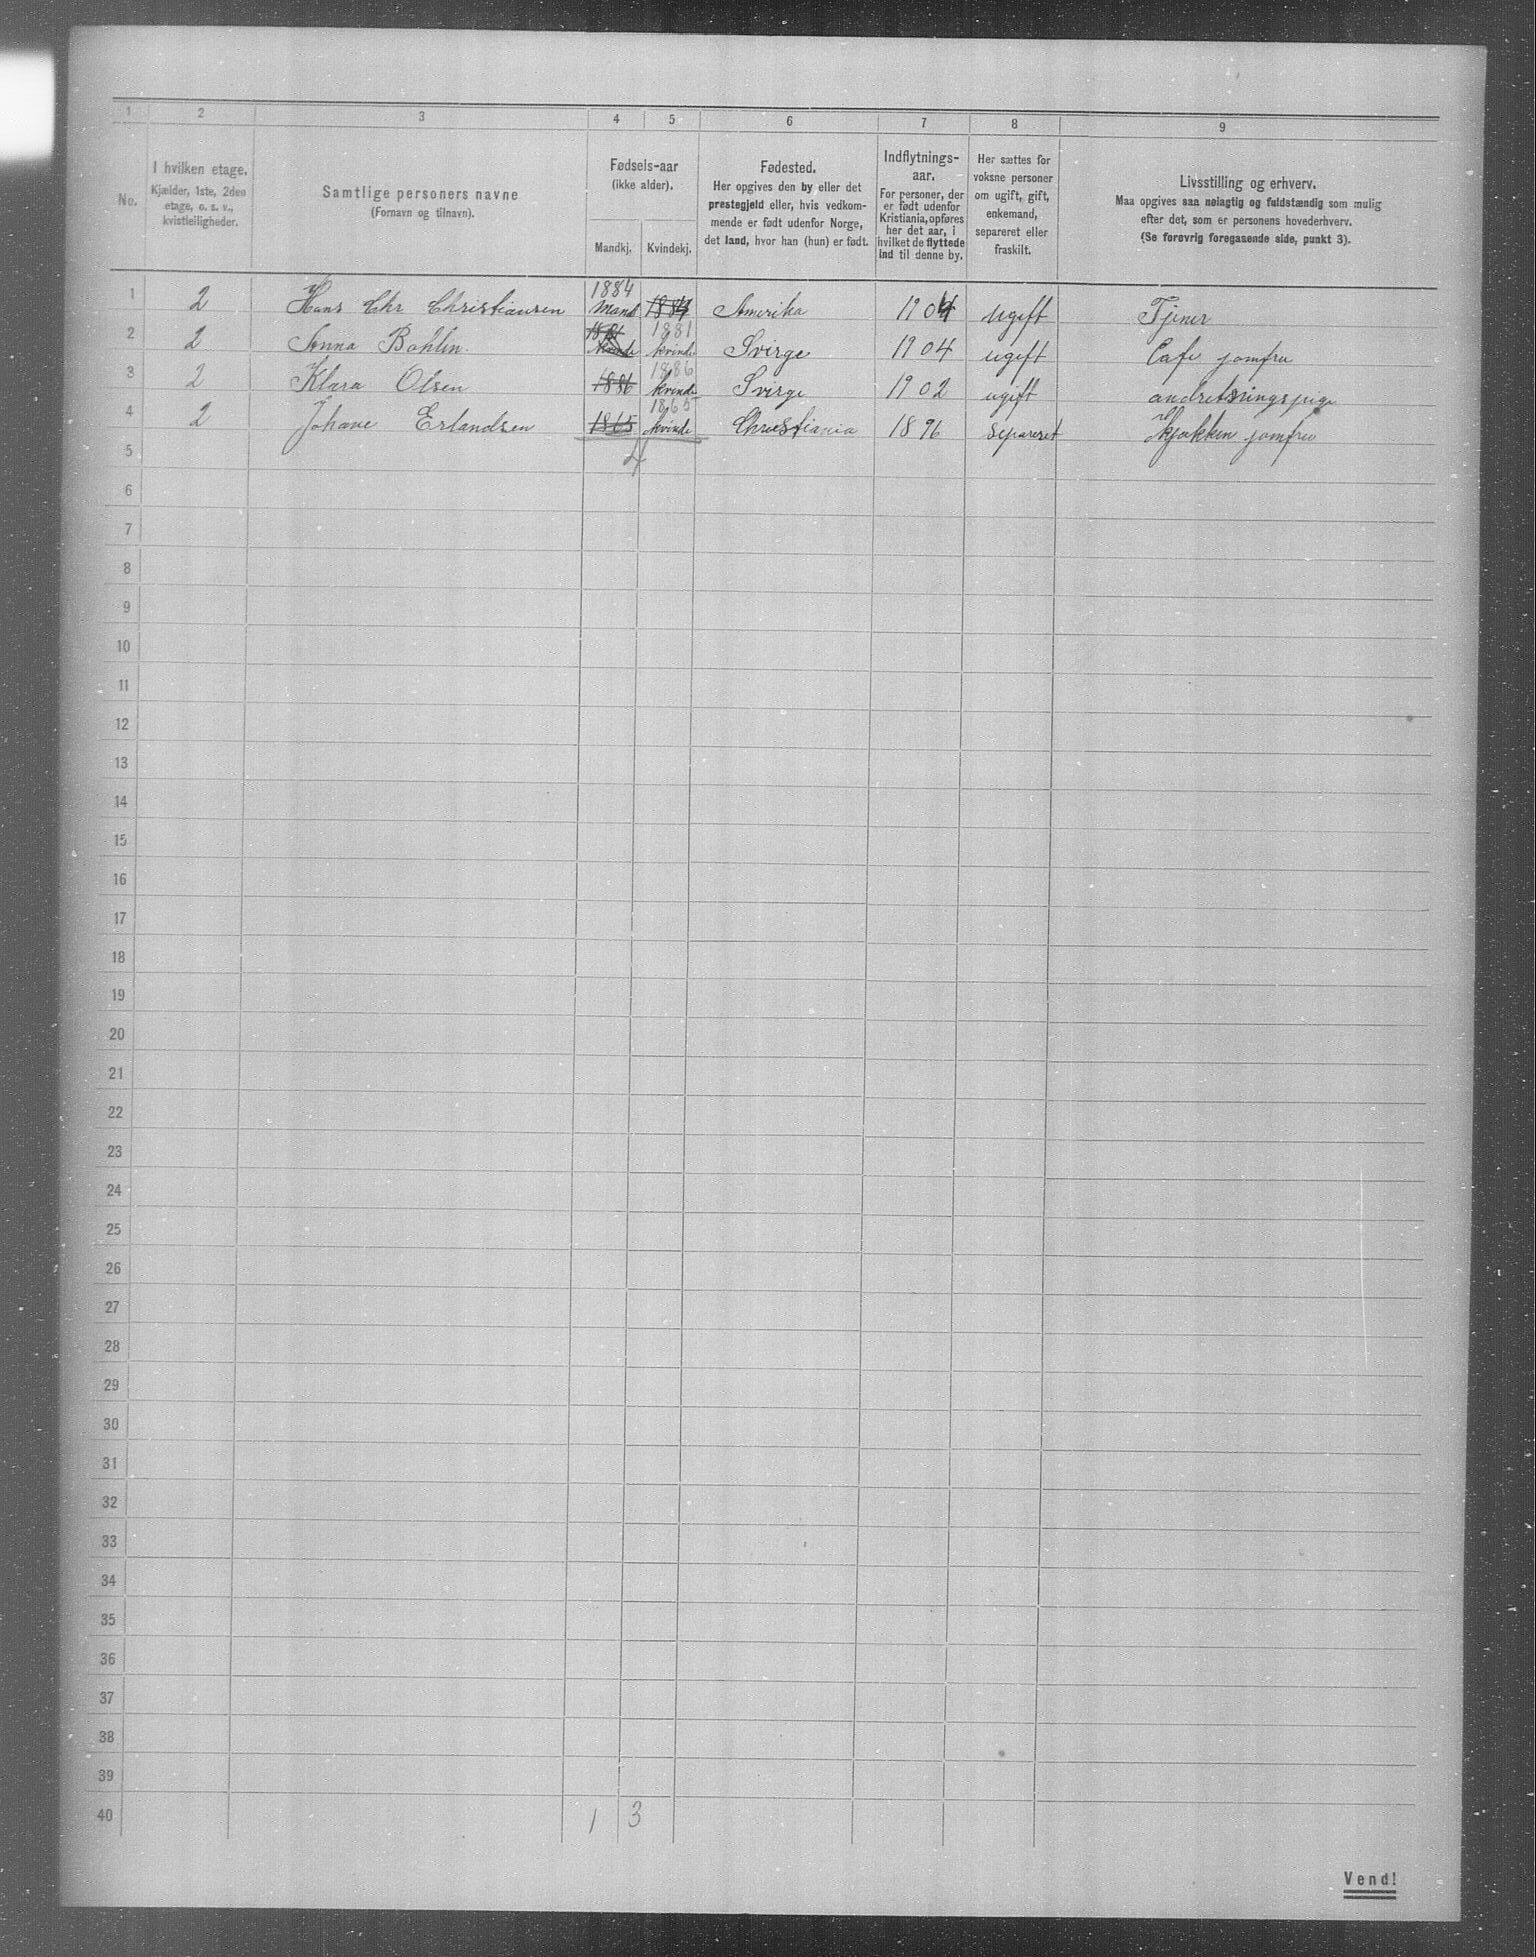 1 2 3 4 5 6 7 8 9
No.
I hvilken etage.
Kjælder, 1ste, 2den
etage, o. s. v.,
kvistleiligheder.
Samtlige personers navne
(Fornavn og tilnavn).
Fødsels-aar
(ikke alder).
Mandkj. Kvindekj.
Fødested.
Her opgives den by eller det
prestegjeld eller, hvis vedkom-
mende er født udenfor Norge,
det land, hvor han (hun) er født.
Indflytnings-
aar.
For personer, der
er født udenfor
Kristiania, opføres
her det aar, i
hvilket de flyttede
ind til denne by.
Her sættes for
voksne personer
om ugift, gift,
enkemand,
separeret eller
fraskilt.
Livsstilling og erhverv.
Maa opgives saa nøiagtig og fuldstændig som mulig
efter det, som er personens hovederhverv.
(Se forøvrig foregaaende side, punkt 3).
1884
1 2 Hans Chr Christiansen Mand 1884 Amerika 1904 ugift Tjener
1881 1881
2 2 Anna Bohlin. kvinde kvinde Sverge 1904 ugift Cafe jomfru
1886
3 2 Klara Olsen 1886 kvinde Sverge 1902 ugift andretningspige
1865
4 2 Johane Erlandsen 1865 kvinde Christiania 1896 Separeret Kjøkken jomfru
5 4
6
7
8
9
10
11
12
13
14
15
16
17
18
19
20
21
22
23
24
25
26
27
28
29
30
31
32
33
34
35
36
37
38
39
40 1 3
Vend!